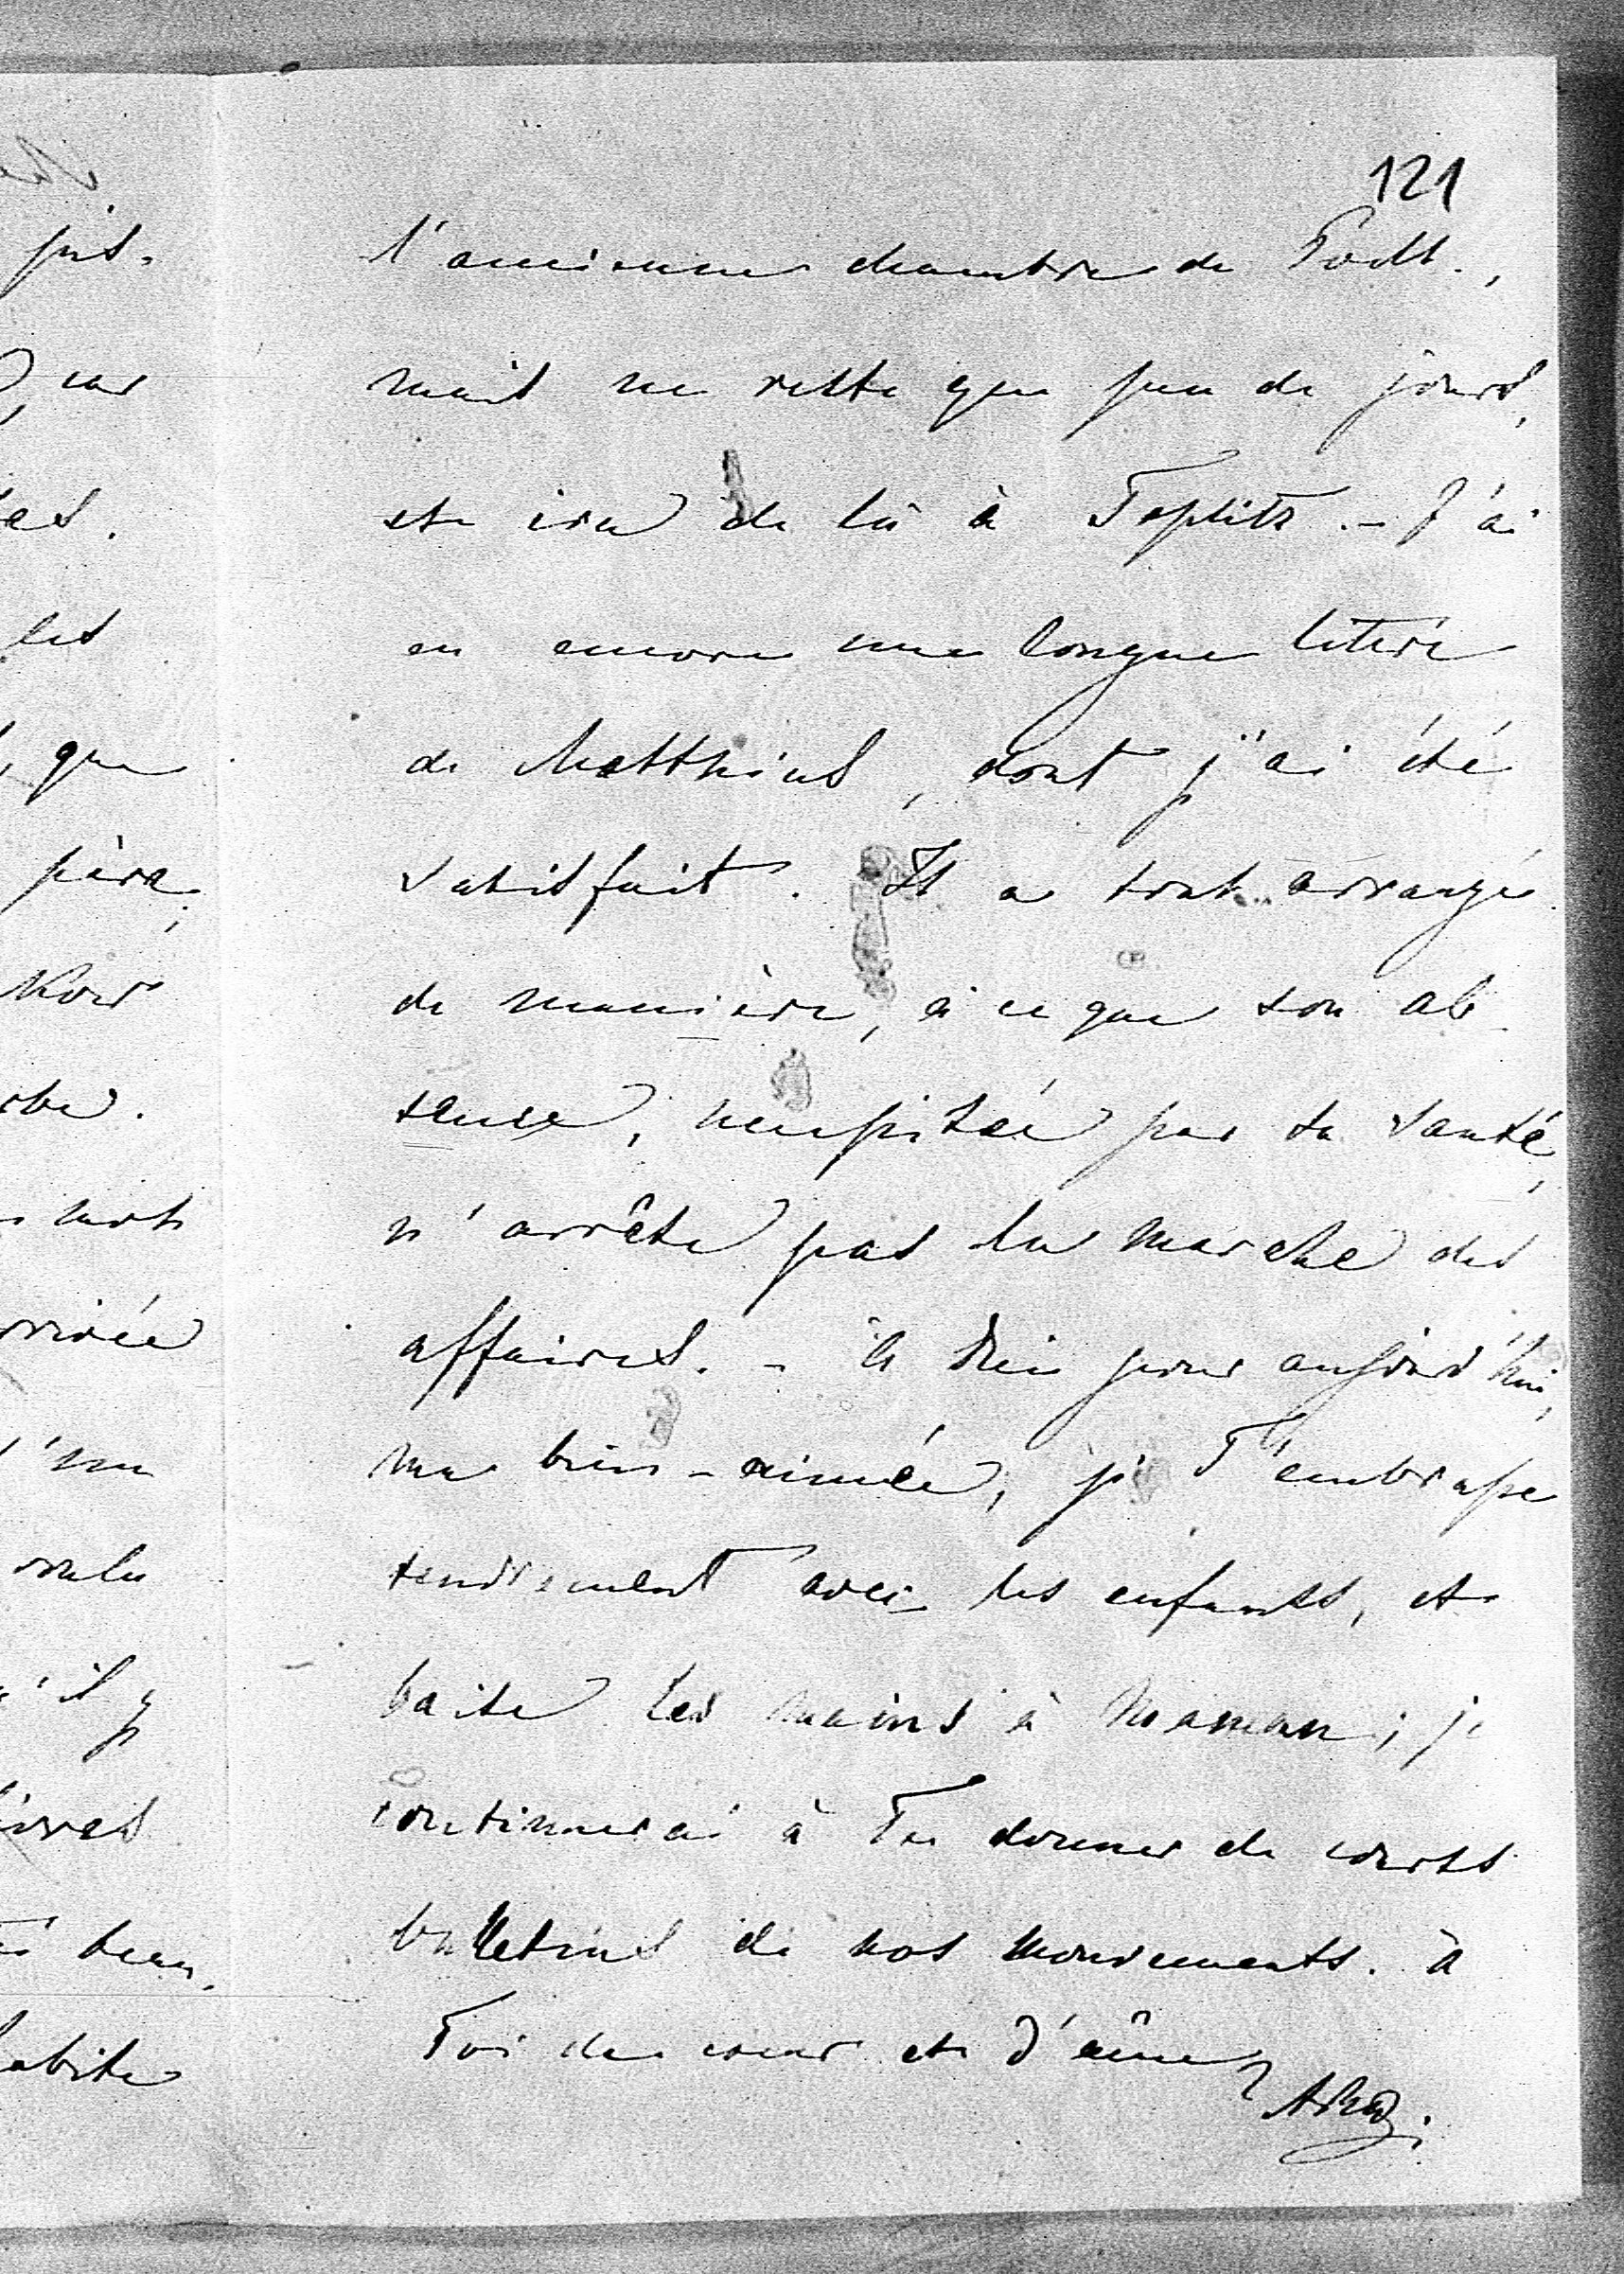 121
l'ancienne chambre de
mais ne reste que peu de jours,
et ira de là à Teplitz. - J'ai
eu encore une longue lettre
de Matthius, dont j'ai été
satisfait. Il a tout arrangé
de manière, à ce que son ab-
sence, par sa santé,
n'arrête pas la marche des
affaires. - à Dieu pour aujourd'hui,
ma bien-aimée, je T'embrasse
tendrement avec les enfants, et
baise les mains à Maman; je
continuerai à Te donner de courts
bulletins de nos mouvements. à
Toi de coeur et d'âme